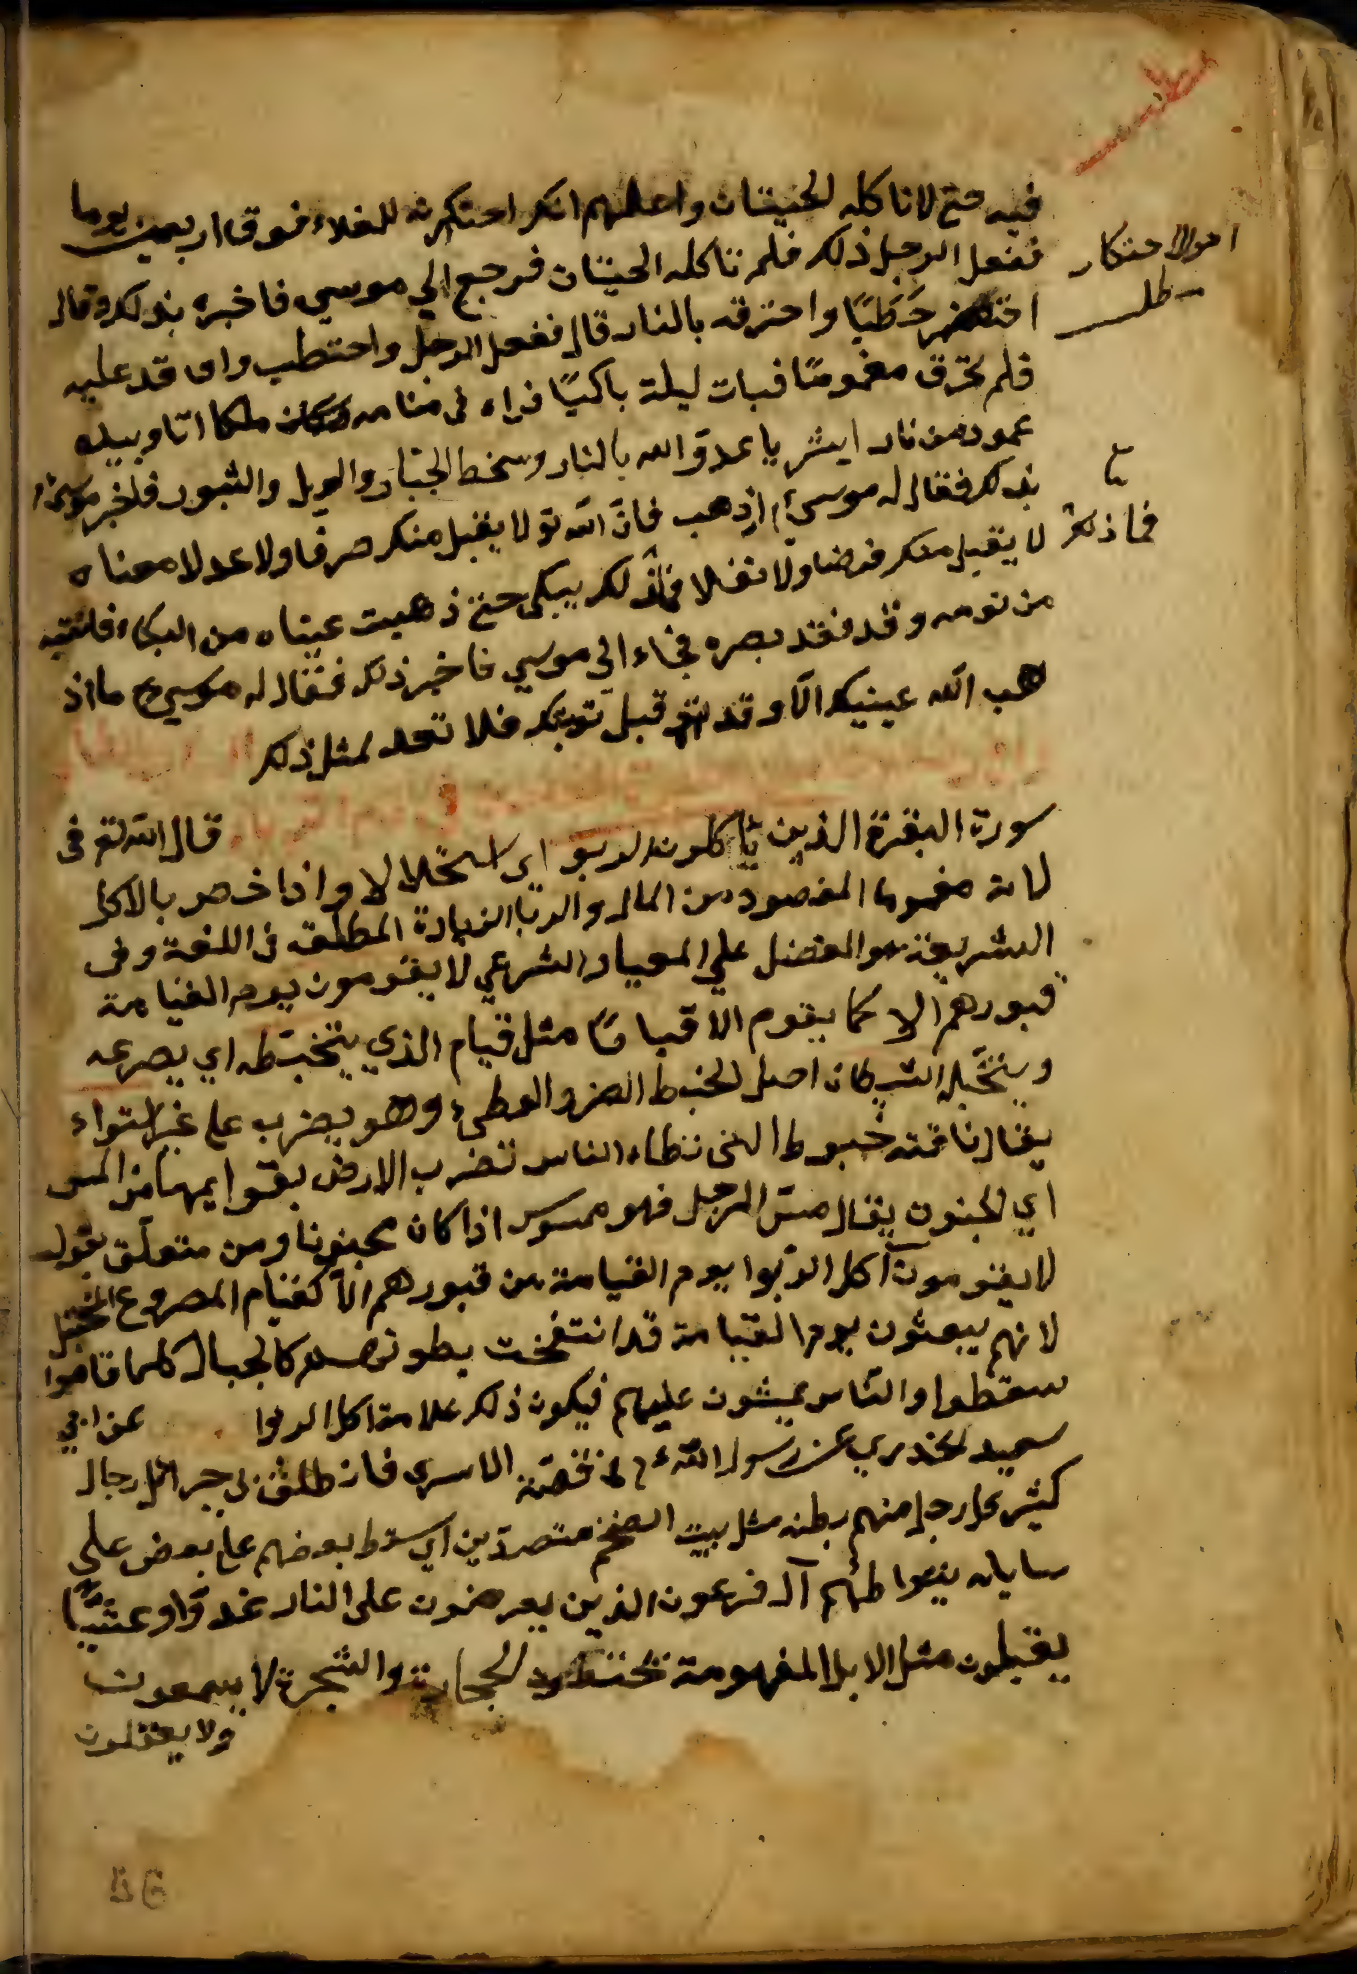 فيه حتى لا تاكله الحيتان واعلمهم انك احتكرته للغلاء فوق اربعين يوما
ففعل الرجل ذلك فلم تاكله الحيتان فرجع الي موسي فاخبره بذلك وقال
احتضر حَطَبًا واحترقه بالنار قال ففعل الرجل واحتطب واوقد عليه
فلم تحرق مغمومًا فبات ليلة باكيًا فراه في منامه ملكا اتا وبيده
عمود من نار ابشر يا عدوّ الله بالنار وسخط الجبّار والويل والثبور فاخبر موسي
بذلك فقال له موسي اذهب فانّ الله تع لا يقبل منك صرفا ولا عدلا معناه
لا يقبل منك فرضا ولا نفلا فماذلك يبكي حتى ذهبت عيناه من البكاء فانتبه
من نومه وقد فقد بصره فجاء الي موسي فاخبر ذلك فقال له موسي ما اذ
هب الله عينيك الّا وقد قبل توبتك فلا تعد لمثل ذلك
قال الله تع في
سورة البقرة الذين ياكلون الربو اي استحلالا واذا خص بالاكل
لانه مفهوما المقصود من المال والربا الزيادة المطلق في اللغة وفي
الشريعة هو الفضل علي المعيار الشرعي لا يقومون يوم القيامة
قبورهم الا كما يقوم الا قيامًا مثل قيام الذي يتخبّطه اي يصرعه
ويتخبّله الشيطان اصل الخبط الضر والوطئ وهو يضرب علي غير استواء
يقال ناقة خبوط التي تطاء الناس تضرب الارض بقوايمها من المس
اي الجنون يقال مسّ الرجل فهو ممسوس اذا كان مجنونا ومن متعلّق بقوله
لا يقومون آكل الرّبوا يوم القيامة من قبورهم الّا كقيام المصروع المختبل
لانهم يبعثون يوم القيامة قد انتفخت بطونهم كالجبال كلما قاموا
سقطوا والنّاس يمشون عليهم فيكون ذلك علامة اكل الربوا عن ابي
سعيد الخدري عن رسول الله في قصّة الاسري فانطلق بي جبرائل رجال
كثير كل رجل منهم بطنه مثل بيت الضخم متصدّين اي سقط بعضهم علي بعض علي
سابلة آل فرعون الذين يعرضون علي النار غدوّا وعشيّا
يقبلون مثل الابل المنهومة الحجارة والشجرة لا يسمعون
ولا يعقلون
احوال احتكار
مطلب
فماذلك